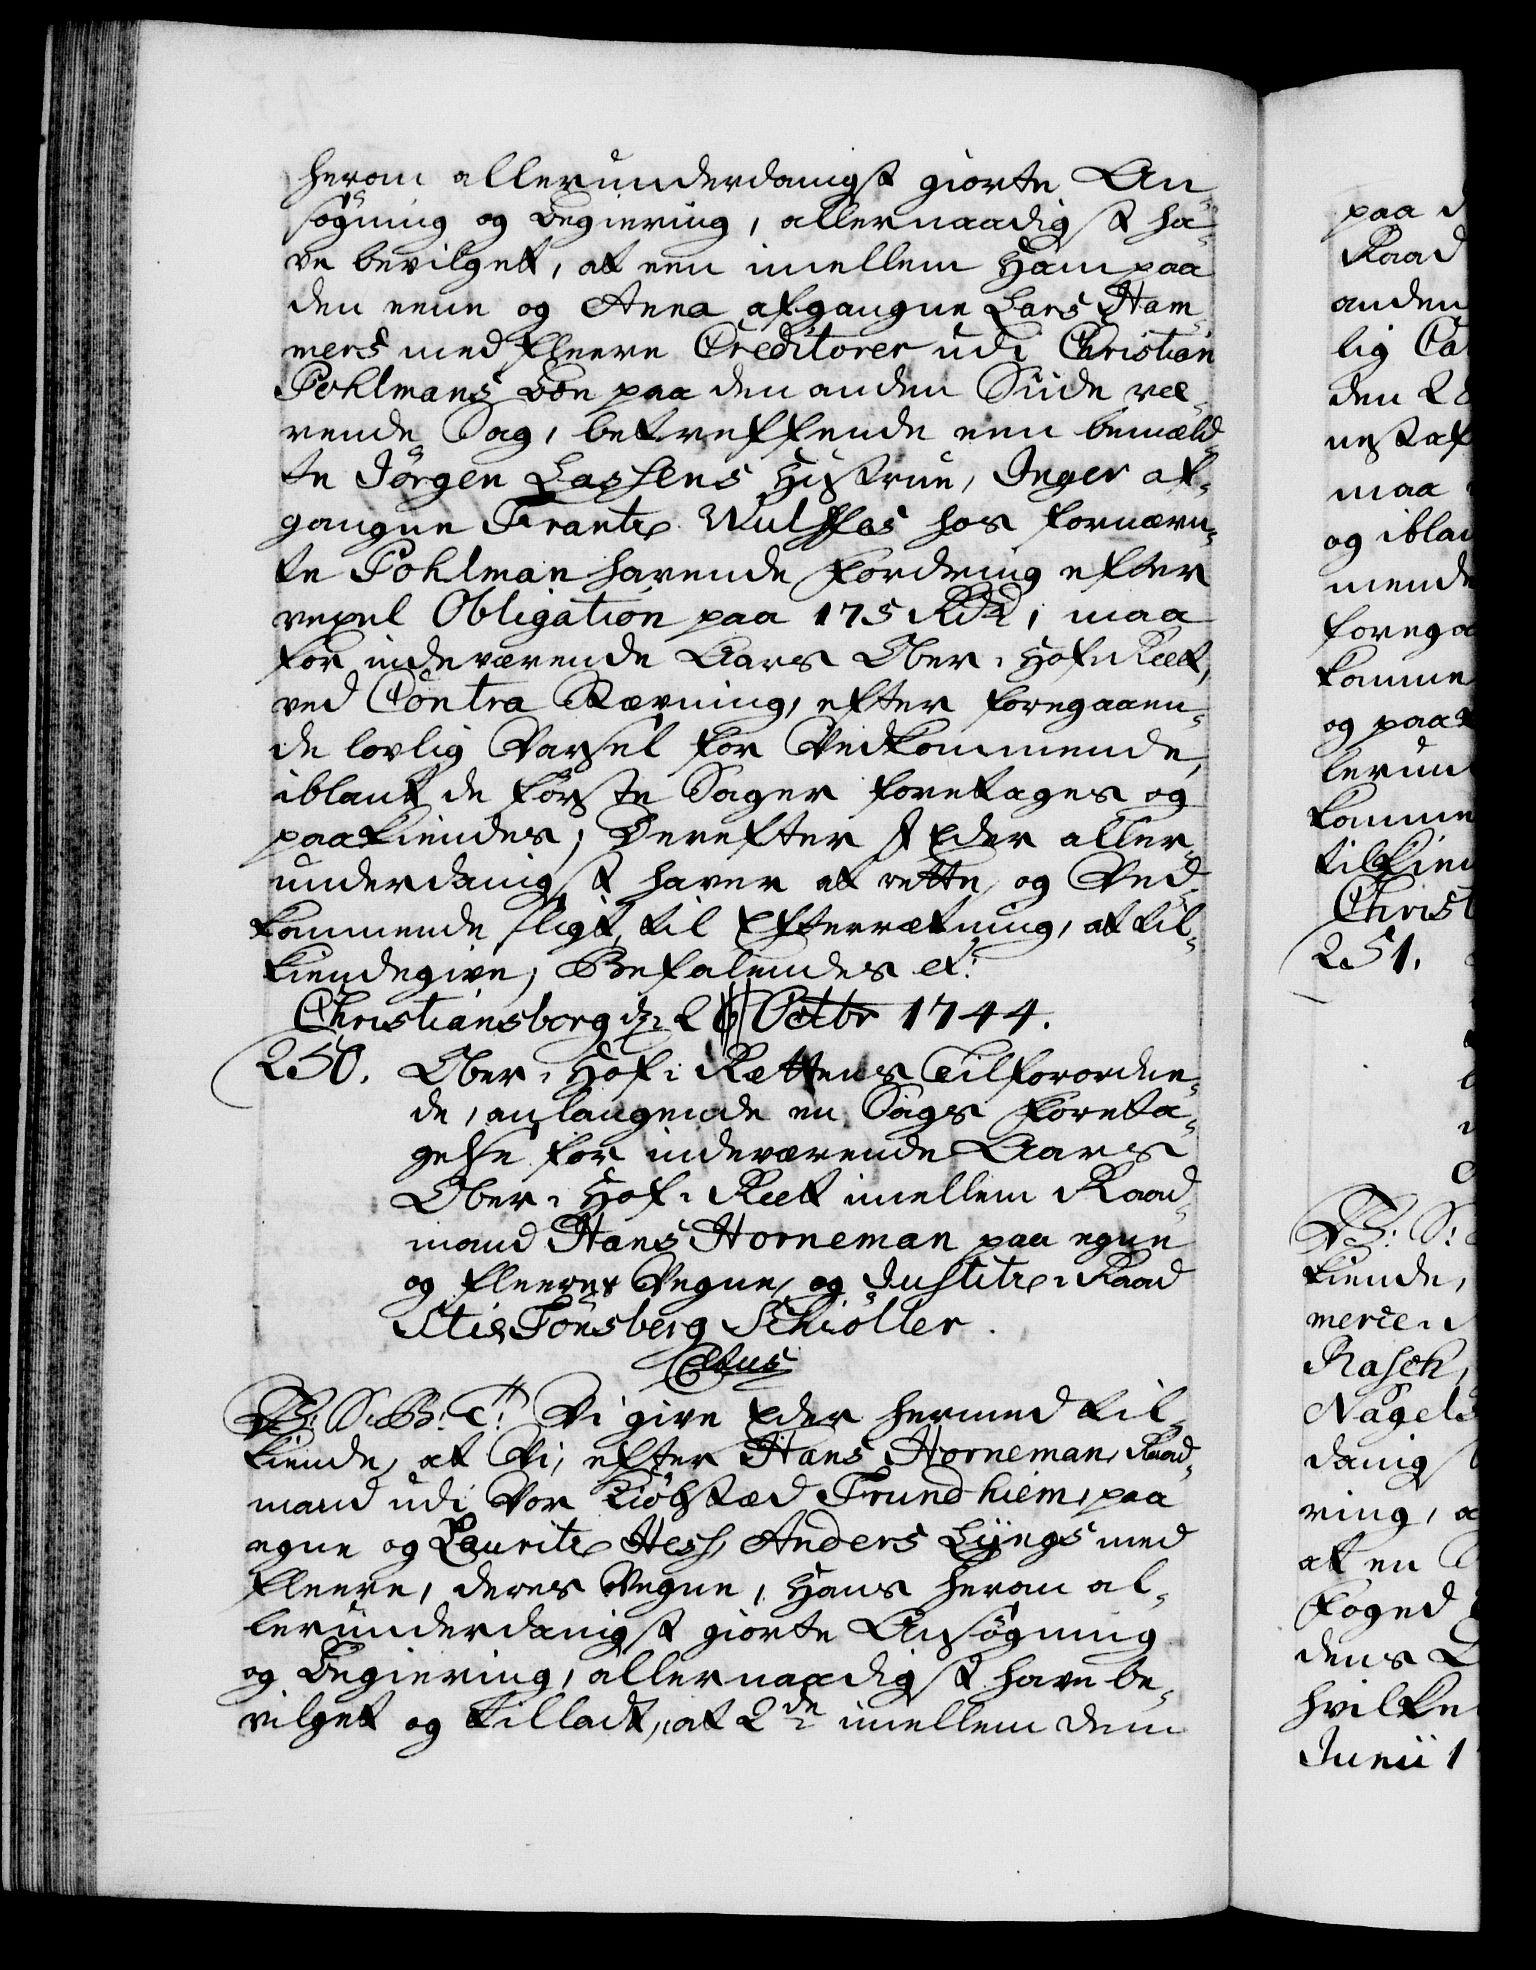 herom allerunderdanigst giorte An-
søgning og Begiering, allernaadigst ha-
ve bevilget, at een imellem Ham paa
den eene og Anna afgangne Lars Ham-
mers med fleere Creditorer udi Christian
Pohlmans Boe paa den anden Siide væ-
rende Sag, betreffende een bemeld-
te Jörgen Lassens Hustrue, Inger af-
gangne Frantz Wulffes hos fornævn-
te Pohlman havende Fordring efter
vexel Obligation paa 175 Rdr, maa
for indeværende Aars Ober-Hof-Ræt,
ved Contra Stævning, efter foregaaen-
de lovlig Varsel for Vedkommende,
iblant de første Sager foretages og
paakiendes; Derefter I Eder aller-
underdanigst haver at rette, og Ved-
kommende sligt, til Efterretning, at til-
kiendegive; Befalendes et:
Christiansborg d: 26 Octbr 1744.
250. Ober-Hof-Rettens Tilforordne-
de, anlangende en Sags Foreta-
gelse for indeværende Aars
Ober-Hof-Ræt imellem Raad-
mand Hans Horneman paa egne
og fleeres Vegne, og Justitz-Raad
Stie Tönsberg Schiöller.
C6tus
V: S: G: T: Vi give Eder hermed til-
kiende, at Vi, efter Hans Horneman, Raad-
mand udi Vor Kiøbstæd Trundhiem, paa
egne og Lauritz Hess, Anders Lyngs med
fleere, deres Vegne, Hans herom al-
lerunderdanigst giorte Ansøgning
og Begiering, allernaadigst have be-
vilget og tilladt, at 2de imellem dem
paa
Raad
anden
lig
den 2
maa
og iblan
mende
forega
komme
og paa
lerun
komme
tilkien
Christ
251.
kiende,
merce-
Rasch,
Nagels
danigs
ring, a
at en
Foged
dens
hvilke
Junii 1